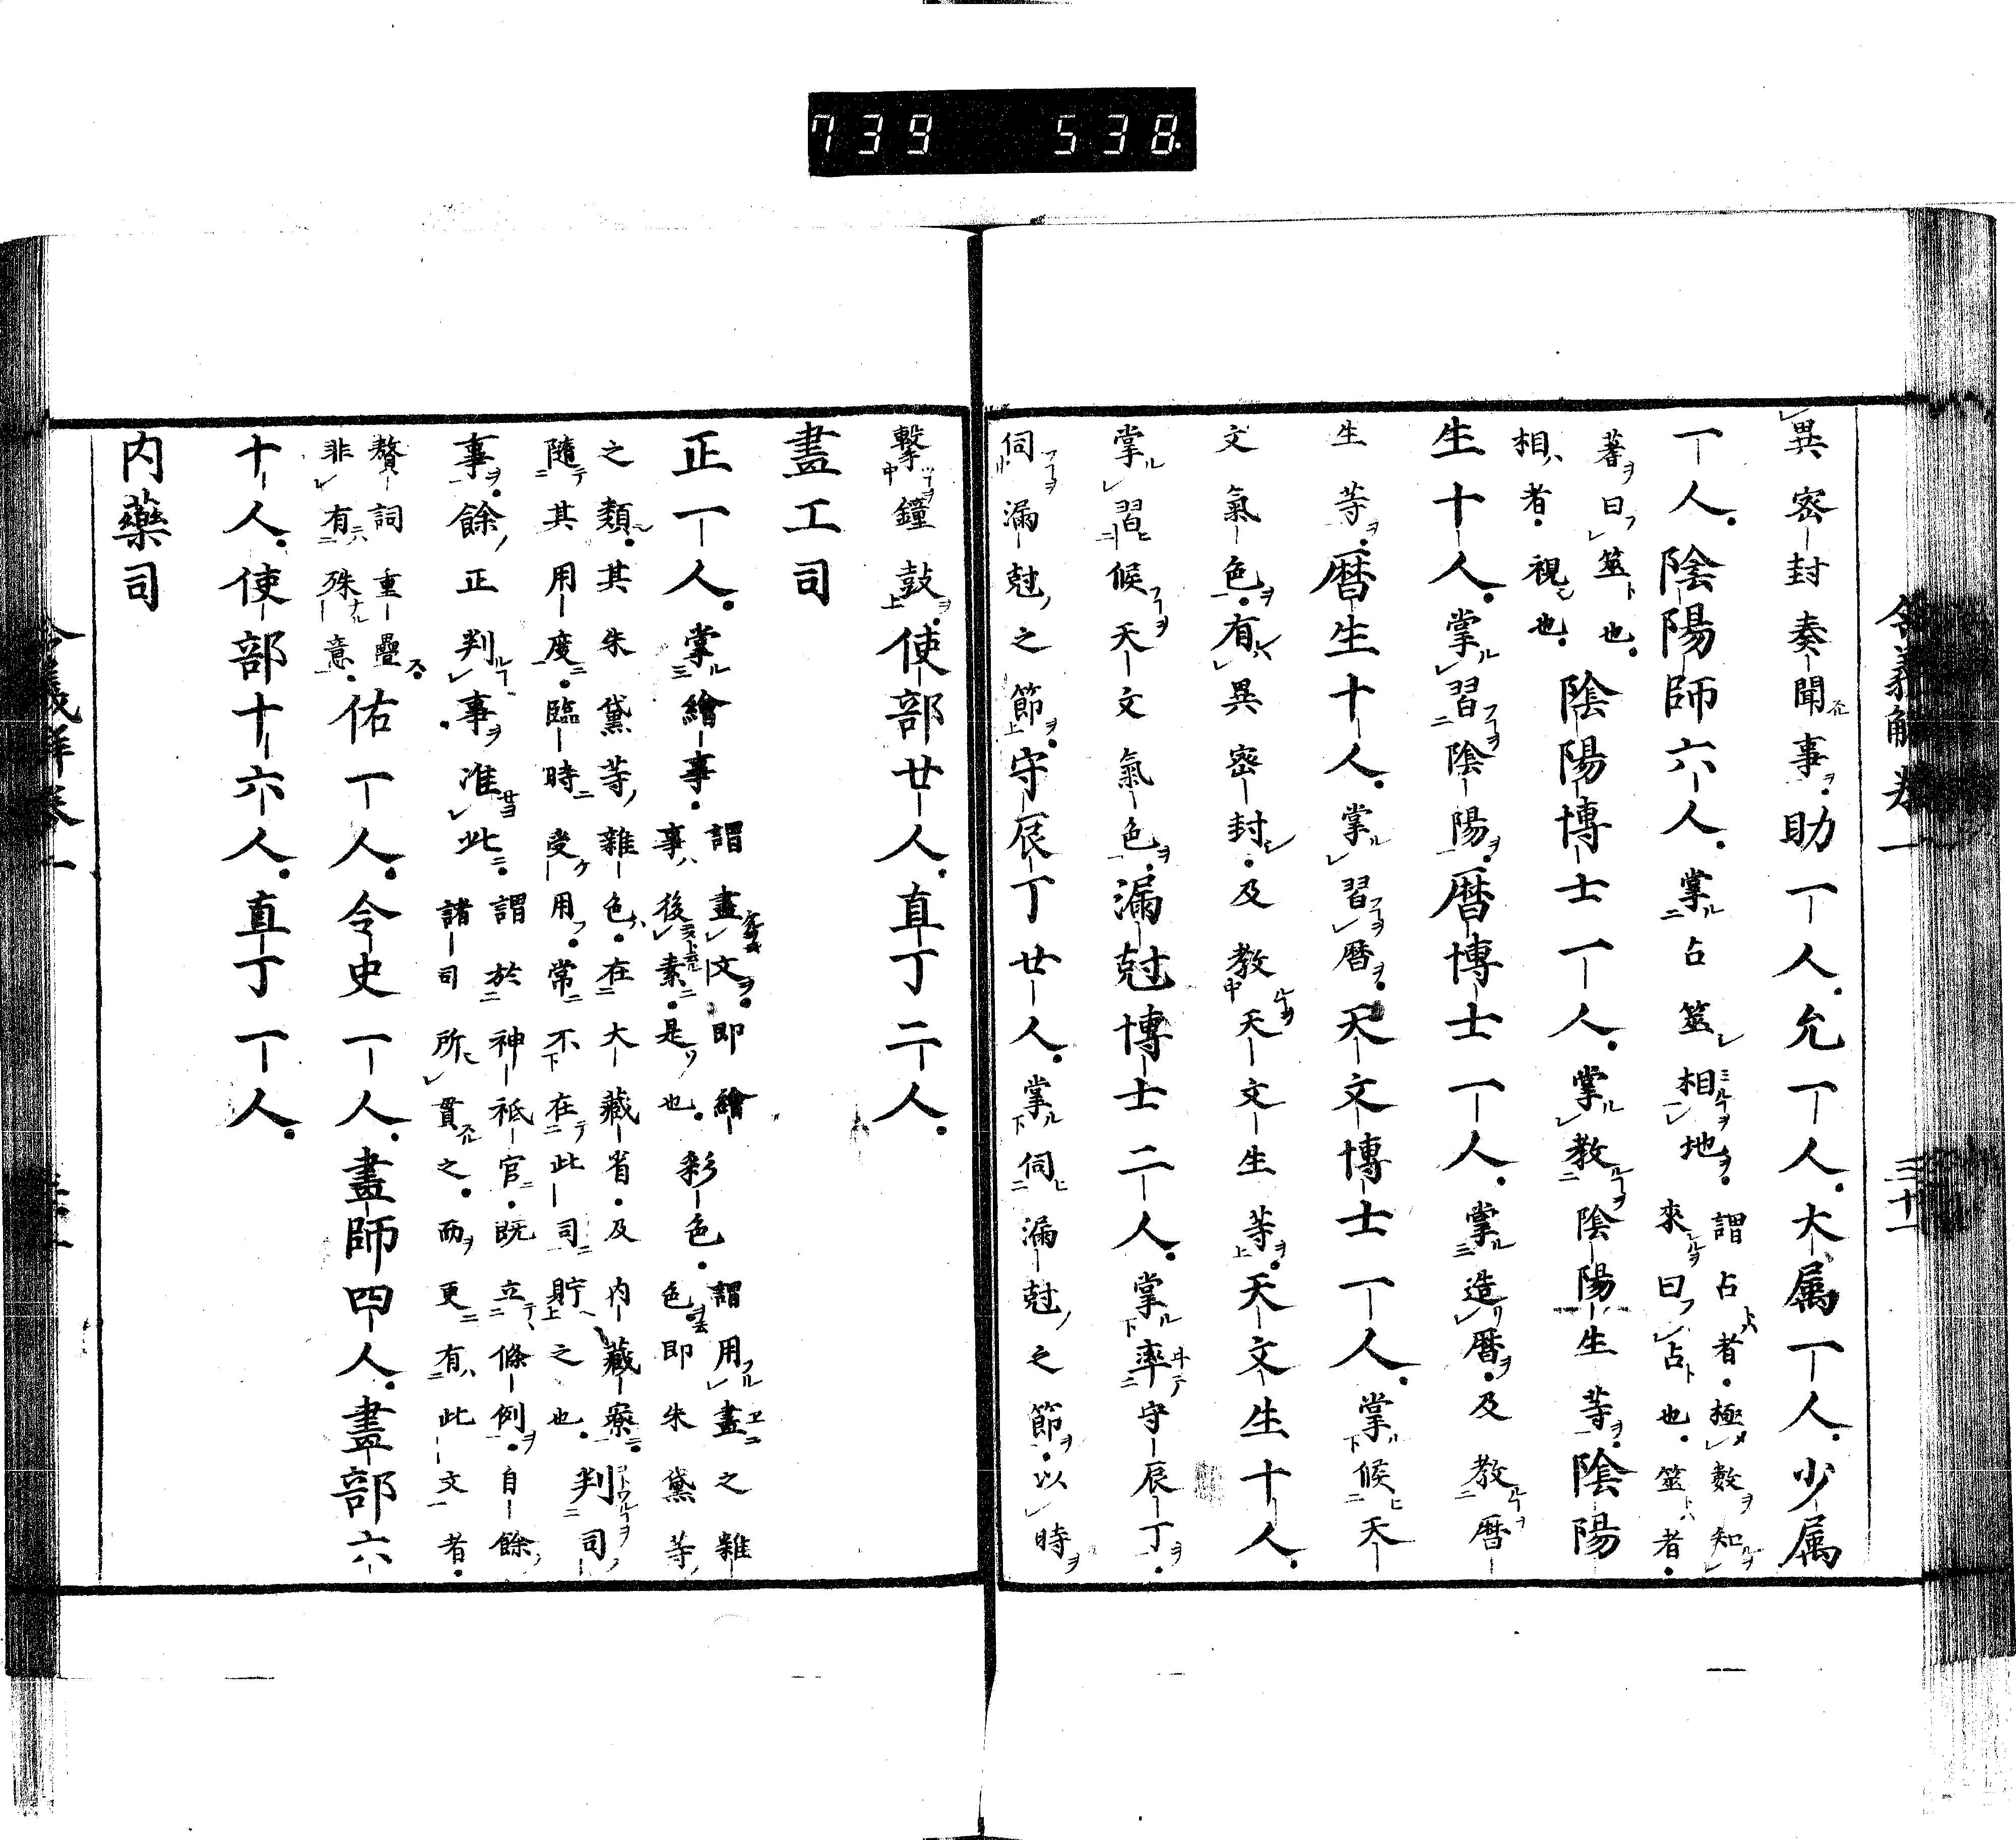 739 538
異密封奏聞事助一人允一人大属一人少属
一人陰陽師六人掌占筮相地謂占者極數知
來曰占也筮者
蓍曰筮也
相者視也陰陽博士一人掌教陰陽生等陰陽
生十人掌習陰陽暦博士一人掌造暦及教暦
生等暦生十人掌習暦天文博士一人掌候天
文氣色有異密封及教天文生等天文生十人
掌習候天文氣色漏尅博士二人掌率守辰丁
伺漏尅之節守辰丁廿人掌伺漏尅之節以時
擊鐘鼓使部廿人直丁二人
畫工司
正一人掌繪事謂畫文即繪
事後素是也彩色謂用畫之雜
色即朱黛等
之類其朱黛等雜色在大藏省及内藏寮
隨其用度臨時受用常不在此司貯之也判司
事餘正判事准此謂於神祇官既立條例自餘
諸司所貫之而更有此文者
贅詞重疊
非有殊意佑一人令史一人畫師四人畫部六
十人使部十六人直丁一人
内藥司